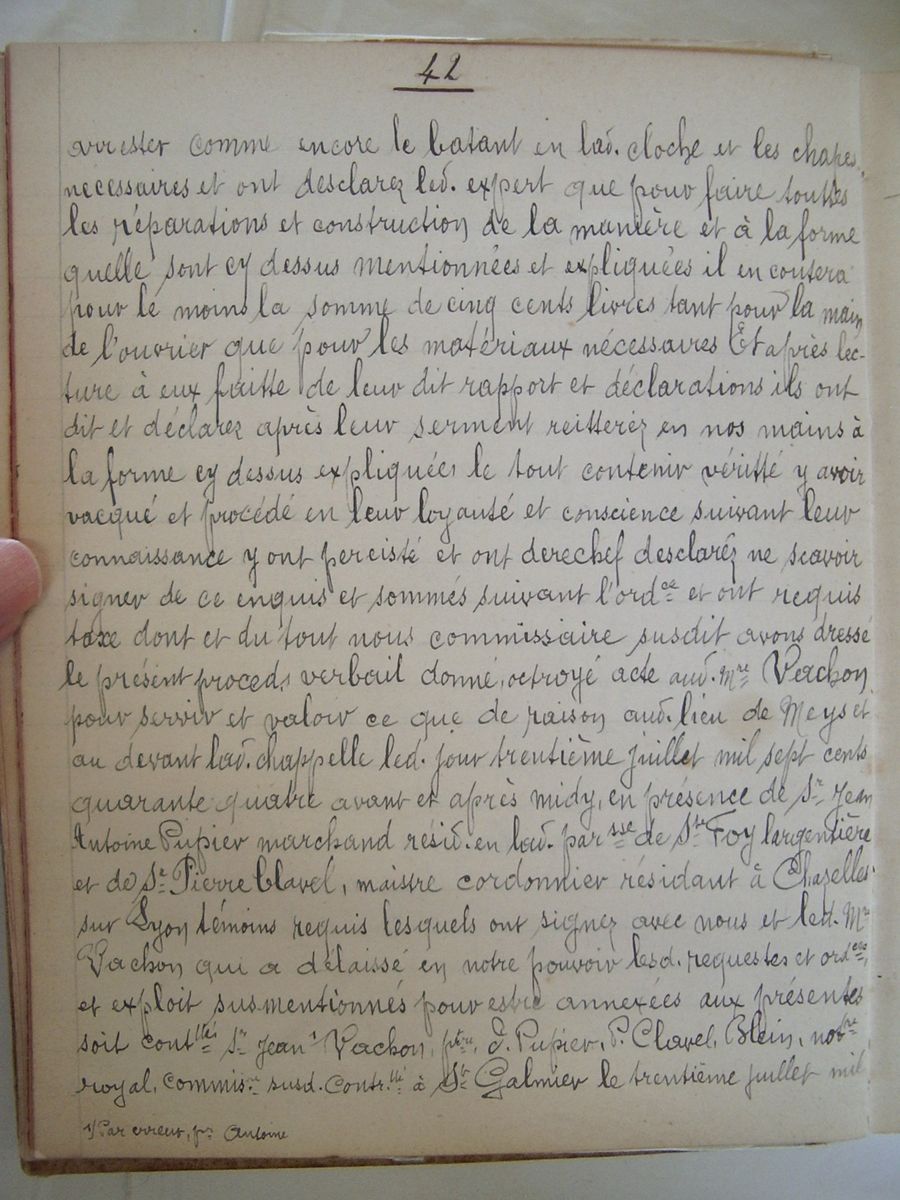 42
arrester comme encore le batant en lad. cloche et les chapes
necessaires et ont desclarez led. expert que pour faire touttes
les réparations et construction de la manière et à la forme
quelle sont cy dessus mentionnées et expliquées il en coutera
pour le moins la somme de cinq cents livres tant pour la main
de l'ouvrier que pour les matériaux nécessaires Et après lec-
ture à eux faitte de leur dit rapport et déclarations ils ont
dit et déclarez après leur serment reitterez en nos mains à
la forme cy dessus expliquées le tout contenir véritté y avoir
vacqué et procédé en leur loyauté et conscience suivant leur
connaissance y ont percisté et ont derechef desclaréz ne scavoir
signer de ce enquis et sommés suivant l'ordce et ont requis
taxe dont et du tout nous commissaire susdit avons dressé
le présent proceds verbail donné, octroyé acte aud. Mre Vachon
pour servir et valoir ce que de raison aud. lieu de Meys et
au devant lad. chappelle led. jour trentième juillet mil sept cents
quarante quatre avant et après midy, en présence de Sr Jean
Antoine Pupier marchand résid. en lad. parsse de Ste Foy largentière
et de Sr Pierre Clavel, maistre cordonnier résidant à Chazelles
sur Lyon témoins requis lesquels ont signez avec nous et led. Mre
Vachon qui a délaissé en notre pouvoir lesd. requestes et ordces
et exploit susmentionnés pour estre annexées aux présentes
soit conttllé Sr Jean1 Vachon, ptre, J. Pupier, P. Clavel, Blein, notre
royal, commisre susd. Contrllé à St Galmier le trentième juillet mil
1) Par erreur, pr Antoine